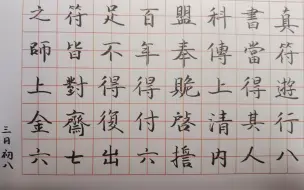 真符遊行八
書當得其人
科傳上清内
盟奉跪啓擔
百年得付六
足不得復出
符皆對齋七
之師上金六
三日初八